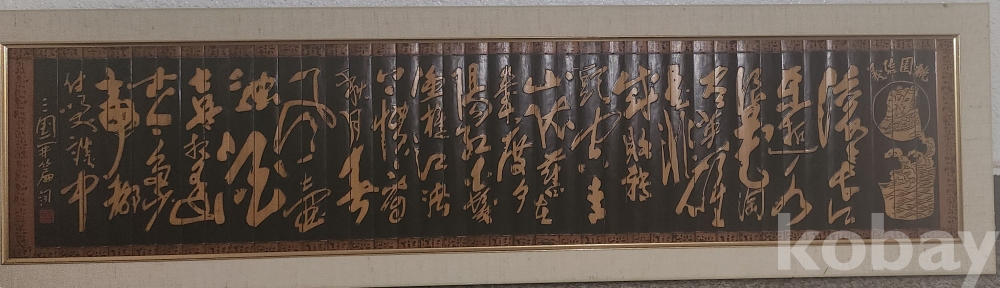 桃園結義
滚滚长江
東逝水
浪花淘
尽英雄
是非
成敗轉
頭空青
山依舊在
幾度夕
陽紅白髮
漁樵江渚
上慣看
秋月春
風一壺
濁酒
喜相逢
古今多少
事都
付笑談中
三國开篇词
kobay